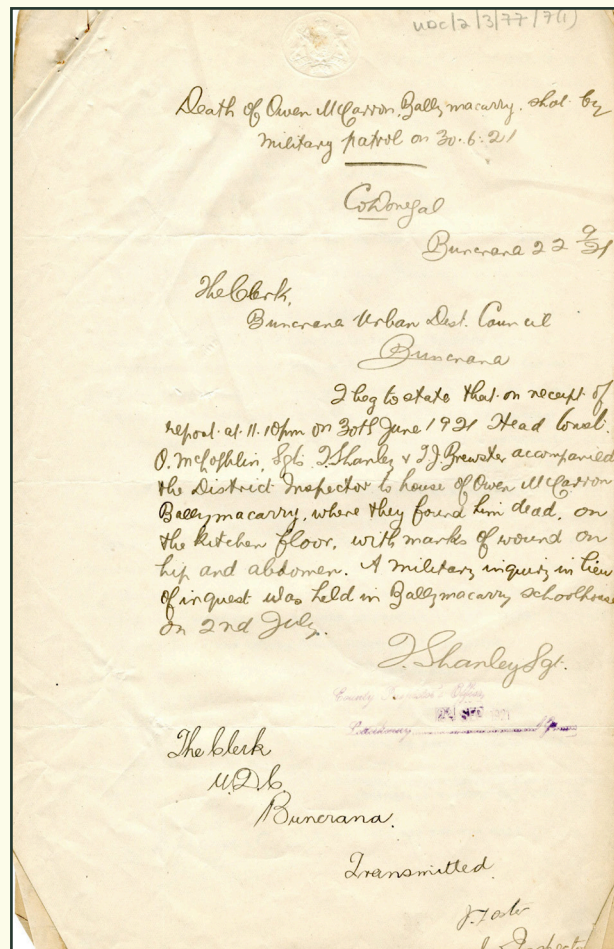 UDC/2/3/77/7(1)
Death of Owen McCarron, Ballymacarry. shot by
Military patrol on 30.6.21
Co Donegal
Buncrana 22 9/21
The Clerk,
Buncrana Urban Dist. Council
Buncrana
I beg to state that on receipt of
report at 11.10pm on 30th June 1921 Head Const.
O. McLoghlin, Sgts. T. Shanley & T.J. Brewster accompanied
the District Inspector to house of Owen McCarron
Ballymacarry, where they found him dead, on
the kitchen floor, with marks of wound on
hip and abdomen. A military inquiry in lieu
of inquest was held in Ballymacarry schoolhouse
on 2nd July.
T. Shanley Sgt.
County Inspector's Office
SEP 1921
The Clerk
U.D.C.
Buncrana.
Transmitted